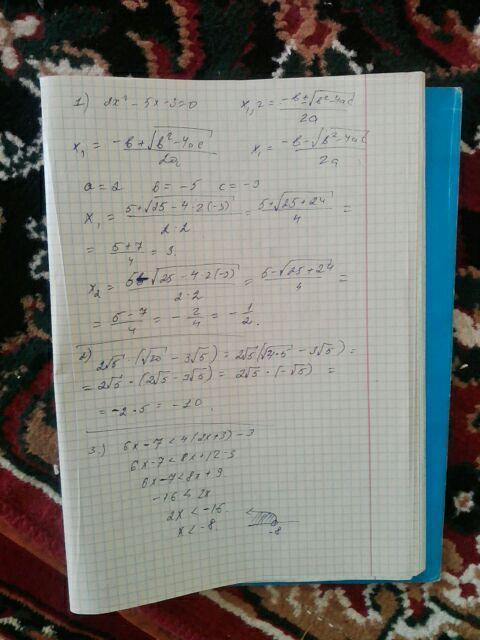 1) 2x² - 5x - 3 = 0 x₁,₂ = (-b ± √(b² - 4ac)) / 2a
x₁ = (-b + √(b² - 4ac)) / 2a x₁ = (-b - √(b² - 4ac)) / 2a
a = 2 b = -5 c = -3
x₁ = (5 + √(25 - 4·2(-3))) / (2·2) = (5 + √(25 + 24)) / 4 =
= (5 + 7) / 4 = 3.
x₂ = (5 - √(25 - 4·2(-3))) / (2·2) = (5 - √(25 + 24)) / 4 =
= (5 - 7) / 4 = -2/4 = -1/2.
2) 2√5 · (√20 - 3√5) = 2√5(√4·5 - 3√5) =
= 2√5 · (2√5 - 3√5) = 2√5 · (-√5) =
= -2 · 5 = -10.
3.) 6x - 7 < 4(2x+3) - 3
6x - 7 < 8x + 12 - 3
6x - 7 < 8x + 9
-16 < 2x
2x < -16.
x < -8.
-8